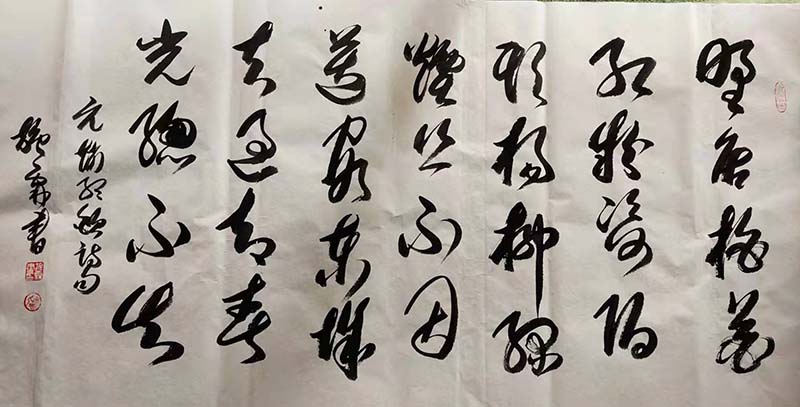 野店桃花
红粉姿陌
头杨柳绿
煙丝不因
送客东城
去过却春
光總不知
元 诗句
書